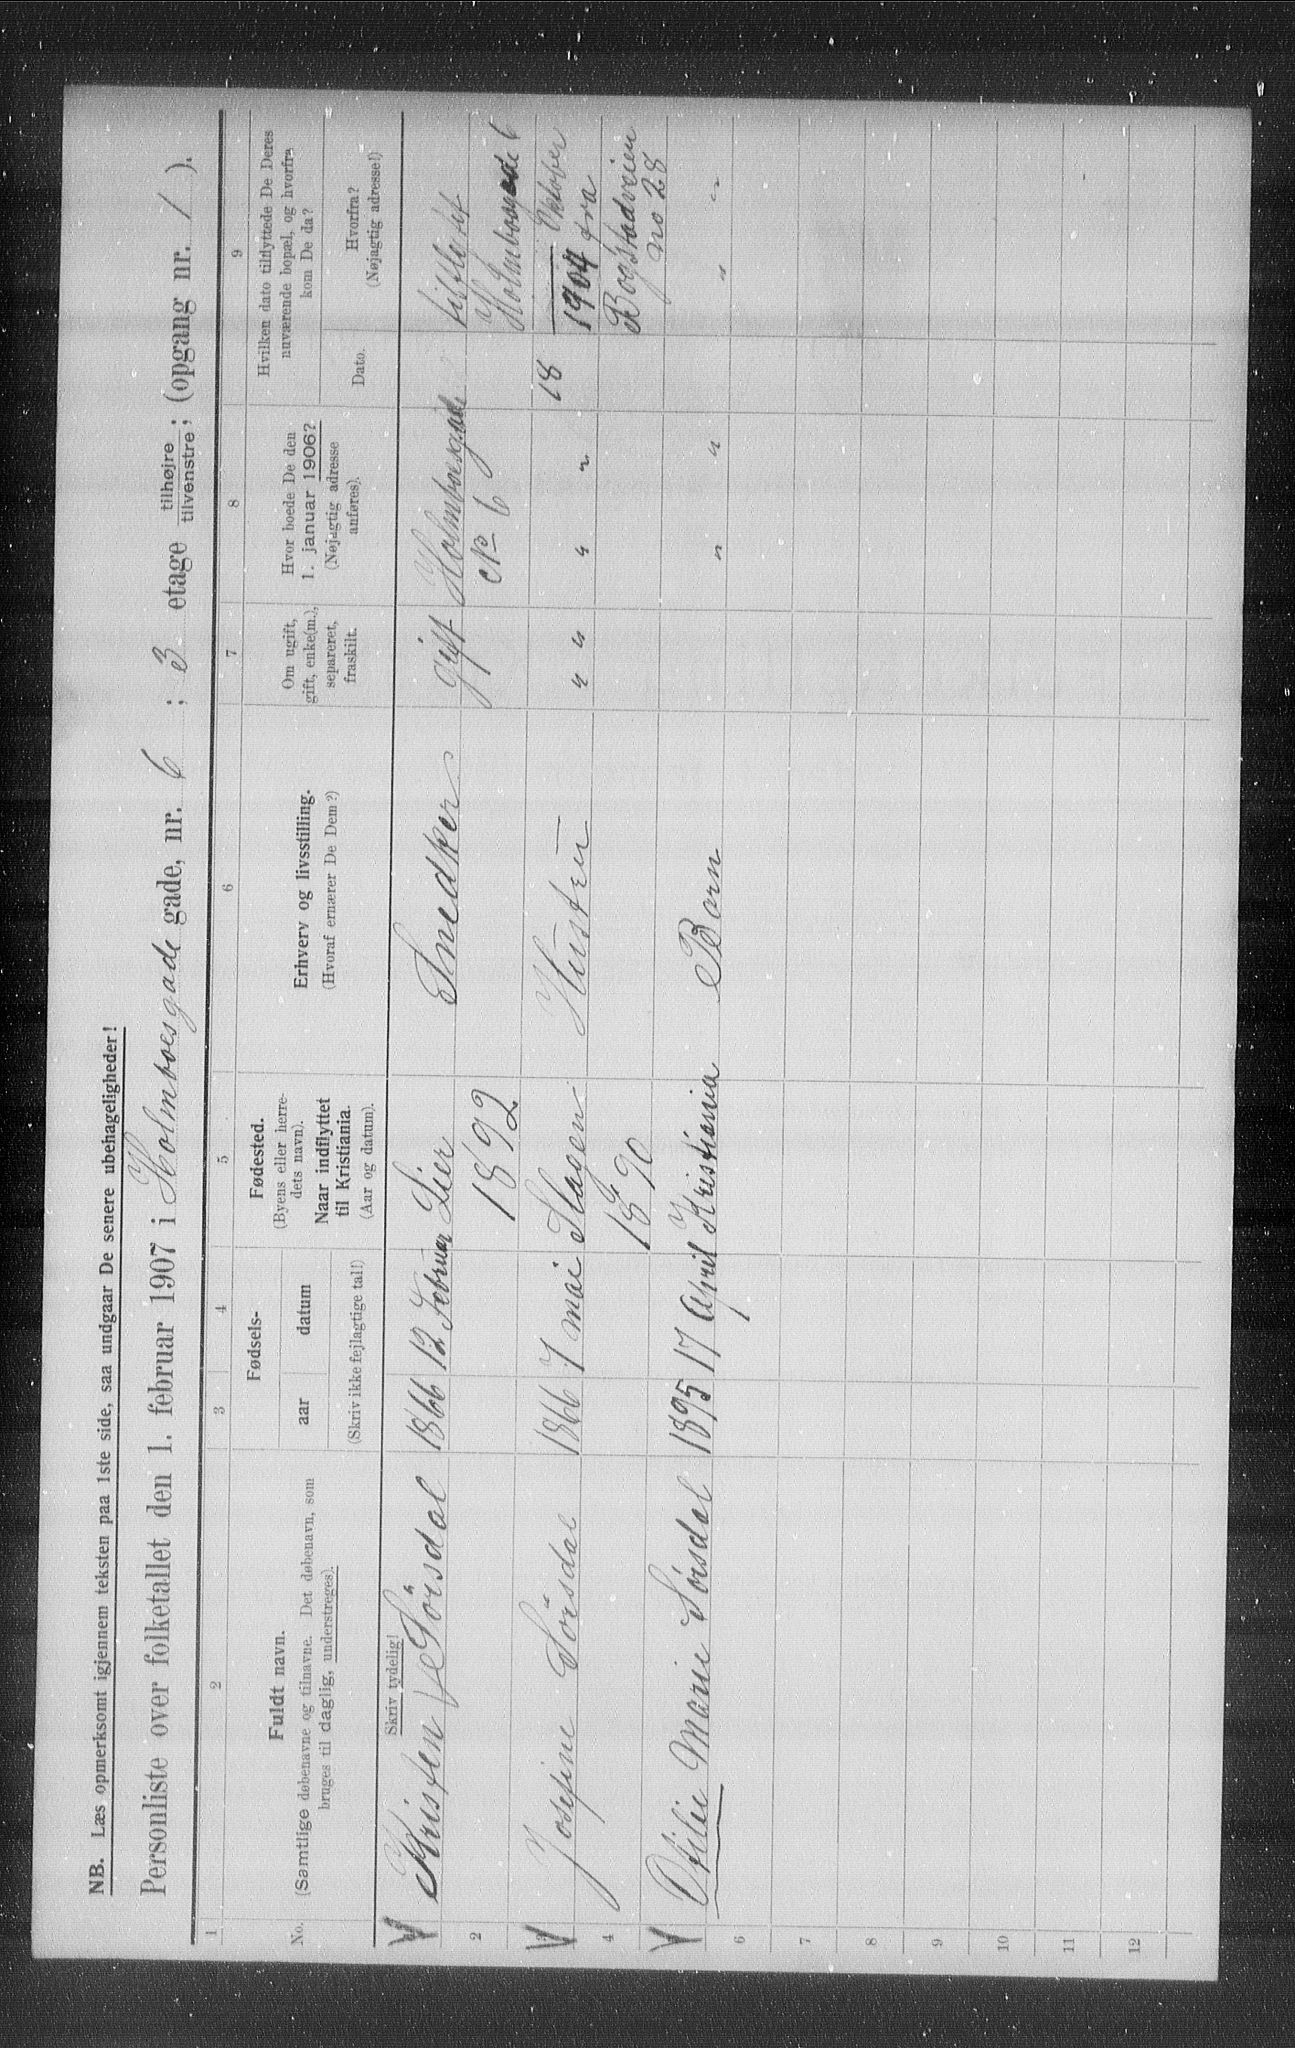 NB. Læs opmerksomt igjennem teksten paa 1ste side, saa undgaar De senere ubehageligheder!
Personliste over folketallet den 1. februar 1907 i Holmboesgade gade, nr. 6 ; 3 etage tilhøjre tilvenstre; (opgang nr. / ).
1 2 3 4 5 6 7 8 9
No.
Fuldt navn.
(Samtlige døbenavne og tilnavne. Det døbenavn, som
bruges til daglig, understreges).
Skriv tydelig!
Fødsels-
aar datum
(Skriv ikke fejlagtige tal!)
Fødested.
(Byens eller herre-
dets navn).
Naar indflyttet
til Kristiania.
(Aar og datum).
Erhverv og livsstilling.
(Hvoraf ernærer De Dem?)
Om ugift,
gift, enke(m.),
separeret,
fraskilt.
Hvor boede De den
1. januar 1906?
(Nøjagtig adresse
anføres).
Hvilken dato tilflyttede De Deres
nuværende bopæl, og hvorfra
kom De da?
Dato.
Hvorfra?
(Nøjagtig adresse!)
Kristen Sörsdal 1866 12 Februar Lier Snedker gift Holmboesgade tilflytet
2 1892 No 6 Holmboesgade 6
Josefine Sörsdal 1866 7 mai Slagen Hustru " " " " 18 Oktober
1904 fra
4 1890 Bogstadveien
no 28
Otilie Marie Sörsdal 1895 17 April Kristiania Barn " " " "
6
7
8
9
10
11
12